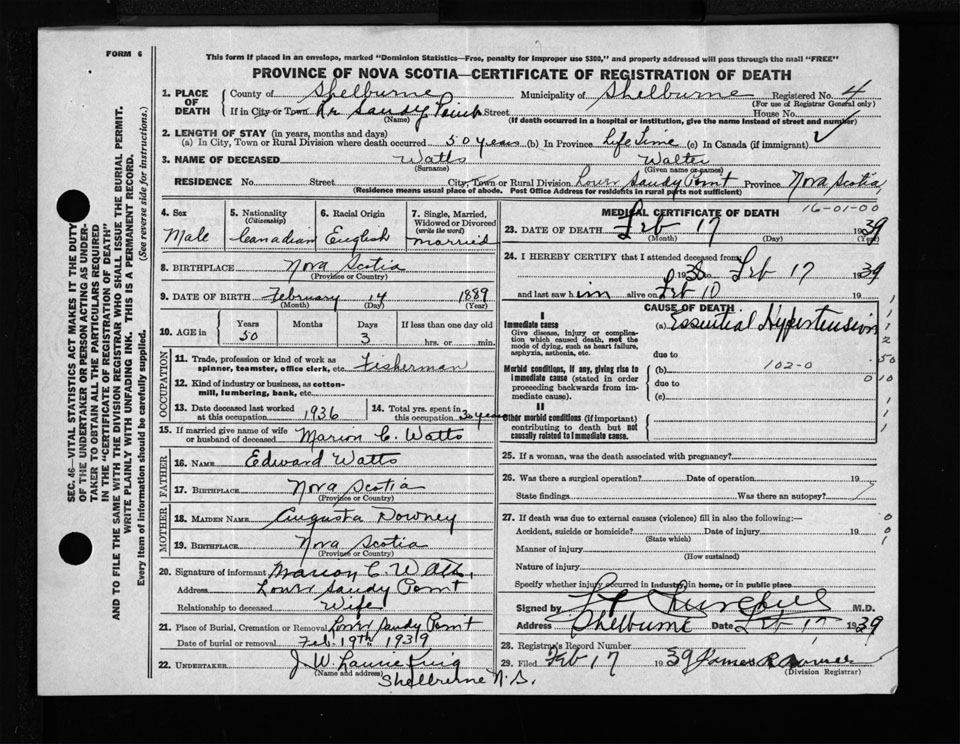 FORM 6
This form if placed in an envelope, marked "Dominion Statistics—Free, penalty for improper use $300," and properly addressed will pass through the mail "FREE"
PROVINCE OF NOVA SCOTIA—CERTIFICATE OF REGISTRATION OF DEATH
SEC. 46—VITAL STATISTICS ACT MAKES IT THE DUTY
OF THE UNDERTAKER OR PERSON ACTING AS UNDER-
TAKER TO OBTAIN ALL THE PARTICULARS REQUIRED
IN THE "CERTIFICATE OF REGISTRATION OF DEATH"
AND TO FILE THE SAME WITH THE DIVISION REGISTRAR WHO SHALL ISSUE THE BURIAL PERMIT.
WRITE PLAINLY WITH UNFADING INK. THIS IS A PERMANENT RECORD.
Every item of information should be carefully supplied. (See reverse side for instructions.)
1. PLACE OF DEATH County of Shelburne Municipality of Shelburne Registered No. 4
(For use of Registrar General only)
If in City or Town Lr. Sandy Point Street House No.
(Name) (If death occurred in a hospital or institution, give the name instead of street and number)
2. LENGTH OF STAY (in years, months and days)
(a) In City, Town or Rural Division where death occurred 50 years (b) In Province Life Time (c) In Canada (if immigrant)
3. NAME OF DECEASED Watts Walter
(Surname) (Given name or names)
RESIDENCE No. Street City, Town or Rural Division Lower Sandy Point Province Nova Scotia
(Residence means usual place of abode. Post Office Address for residents in rural parts not sufficient)
4. Sex Male
5. Nationality (Citizenship) Canadian
6. Racial Origin English
7. Single, Married, Widowed or Divorced (write the word) married
8. BIRTHPLACE Nova Scotia
(Province or Country)
9. DATE OF BIRTH February 14 1889
(Month) (Day) (Year)
10. AGE in Years 50 Months Days 3 If less than one day old hrs. or min.
OCCUPATION
11. Trade, profession or kind of work as
spinner, teamster, office clerk, etc. Fisherman
12. Kind of industry or business, as cotton-
mill, lumbering, bank, etc.
13. Date deceased last worked
at this occupation 1936
14. Total yrs. spent in
this occupation 30 years
15. If married give name of wife
or husband of deceased Marion C. Watts
FATHER
16. NAME Edward Watts
17. BIRTHPLACE Nova Scotia
(Province or Country)
MOTHER
18. MAIDEN NAME Augusta Downey
19. BIRTHPLACE Nova Scotia
(Province or Country)
20. Signature of informant Marion C. Watts
Address Lower Sandy Point
Relationship to deceased Wife
21. Place of Burial, Cremation or Removal Lower Sandy Point
Date of burial or removal Feb. 19th 1939
22. UNDERTAKER J. W. Laurie
(Name and address) Shelburne N.S.
MEDICAL CERTIFICATE OF DEATH 16-01-00
23. DATE OF DEATH Feb 17 1939
(Month) (Day) (Year)
24. I HEREBY CERTIFY that I attended deceased from
1938 to Feb 17 1939
and last saw him alive on Feb 10 19
CAUSE OF DEATH
I
Immediate cause (a) Essential Hypertension
Give disease, injury or complica-
tion which caused death, not the
mode of dying, such as heart failure,
asphyxia, asthenia, etc.
due to
Morbid conditions, if any, giving rise to
immediate cause (stated in order
proceeding backwards from im-
mediate cause).
(b) 102-0
due to
(c)
II
Other morbid conditions (if important)
contributing to death but not
causally related to immediate cause.
25. If a woman, was the death associated with pregnancy?
26. Was there a surgical operation? Date of operation 19
State findings Was there an autopsy?
27. If death was due to external causes (violence) fill in also the following:—
Accident, suicide or homicide? Date of injury 19
(State which)
Manner of injury
(How sustained)
Nature of injury
Specify whether injury occurred in industry, in home, or in public place
Signed by Churchill M.D.
Address Shelburne Date Feb 17 1939
28. Registrar's Record Number
29. Filed Feb 17 1939 James R
(Division Registrar)